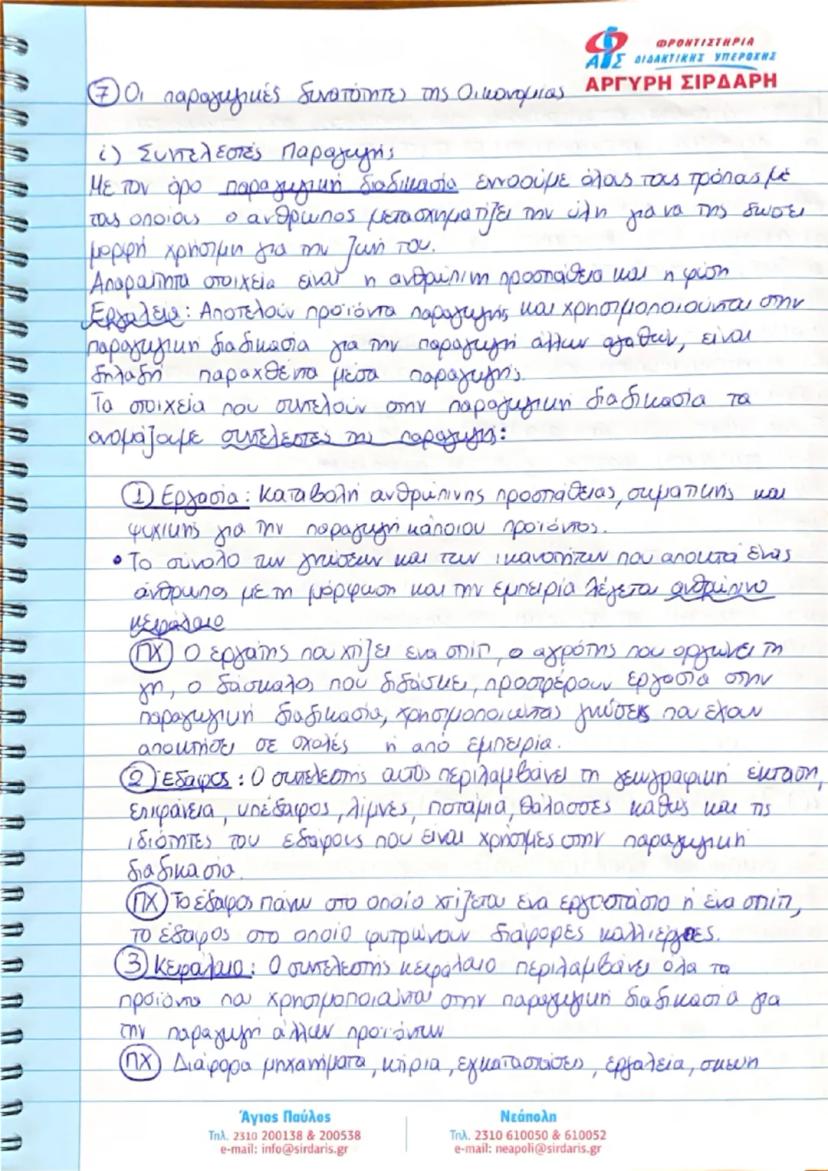 ΦΡΟΝΤΙΣΤΗΡΙΑ
ΔΙΔΑΚΤΙΚΗΣ ΥΠΕΡΟΧΗΣ
ΑΡΓΥΡΗ ΣΙΡΔΑΡΗ
⑦ Οι παραγωγικές δυνατότητες της Οικονομίας
i) Συντελεστές Παραγωγής
Με τον όρο παραγωγική διαδικασία εννοούμε όλους τους τρόπους με
τους οποίους ο άνθρωπος μετασχηματίζει την ύλη για να της δώσει
μορφή χρήσιμη για την ζωή του.
Απαραίτητα στοιχεία είναι η ανθρώπινη προσπάθεια και η φύση
Εργαλεία: Αποτελούν προϊόντα παραγωγής και χρησιμοποιούνται στην
παραγωγική διαδικασία για την παραγωγή άλλων αγαθών, είναι
δηλαδή παραχθέντα μέσα παραγωγής.
Τα στοιχεία που συντελούν στην παραγωγική διαδικασία τα
ονομάζουμε συντελεστές της παραγωγής:
① Εργασία: Καταβολή ανθρώπινης προσπάθειας, σωματικής και
ψυχικής για την παραγωγή κάποιου προϊόντος.
• Το σύνολο των γνώσεων και των ικανοτήτων που αποκτά ένας
άνθρωπος με τη μόρφωση και την εμπειρία λέγεται ανθρώπινο
κεφάλαιο
ΠΧ Ο εργάτης που χτίζει ένα σπίτι, ο αγρότης που οργώνει τη
γη, ο δάσκαλος που διδάσκει, προσφέρουν εργασία στην
παραγωγική διαδικασία, χρησιμοποιώντας γνώσεις που έχουν
αποκτήσει σε σχολές ή από εμπειρία.
② Έδαφος: Ο συντελεστής αυτός περιλαμβάνει τη γεωγραφική έκταση,
επιφάνεια, υπέδαφος, λίμνες, ποτάμια, θάλασσες καθώς και τις
ιδιότητες του εδάφους που είναι χρήσιμες στην παραγωγική
διαδικασία.
ΠΧ Το έδαφος πάνω στο οποίο χτίζεται ένα εργοστάσιο ή ένα σπίτι,
το έδαφος στο οποίο φυτρώνουν διάφορες καλλιέργειες.
③ Κεφάλαιο: Ο συντελεστής κεφάλαιο περιλαμβάνει όλα τα
προϊόντα που χρησιμοποιούνται στην παραγωγική διαδικασία για
την παραγωγή άλλων προϊόντων
ΠΧ Διάφορα μηχανήματα, κτίρια, εγκαταστάσεις, εργαλεία, σκεύη
Άγιος Παύλος
Τηλ. 2310 200138 & 200538
e-mail: info@sirdaris.gr
Νεάπολη
Τηλ. 2310 610050 & 610052
e-mail: neapoli@sirdaris.gr